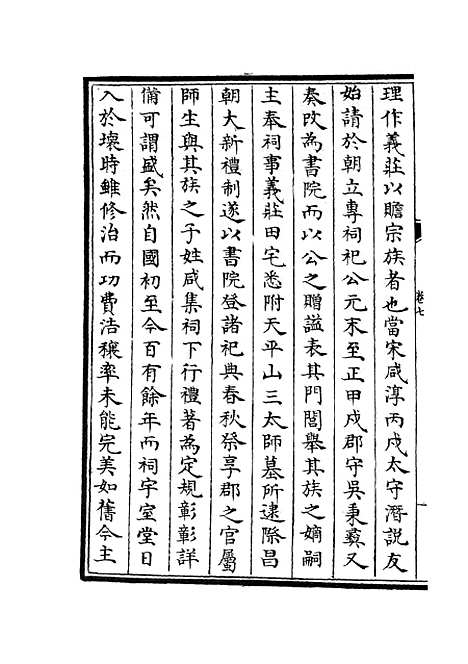 理作義莊以贍宗族者也當宋咸淳丙戍太守潛說友
始請於朝立專祠祀公元末至正甲戍郡守吳秉彞又
奏改為書院而以公之贈諡表其門閭舉其族之嫡嗣
主奉祠事義莊田宅悉附天平山三太師墓所逮際昌
朝大新禮制遂以書院登諸祀典春秋祭享郡之官屬
師生與其族之子姓咸集祠下行禮著為定規彰彰詳
備可謂盛矣然自國初至今百有餘年而祠宇室堂日
入於壞時雖修治而功費浩穰率未能完美如舊今主
卷七